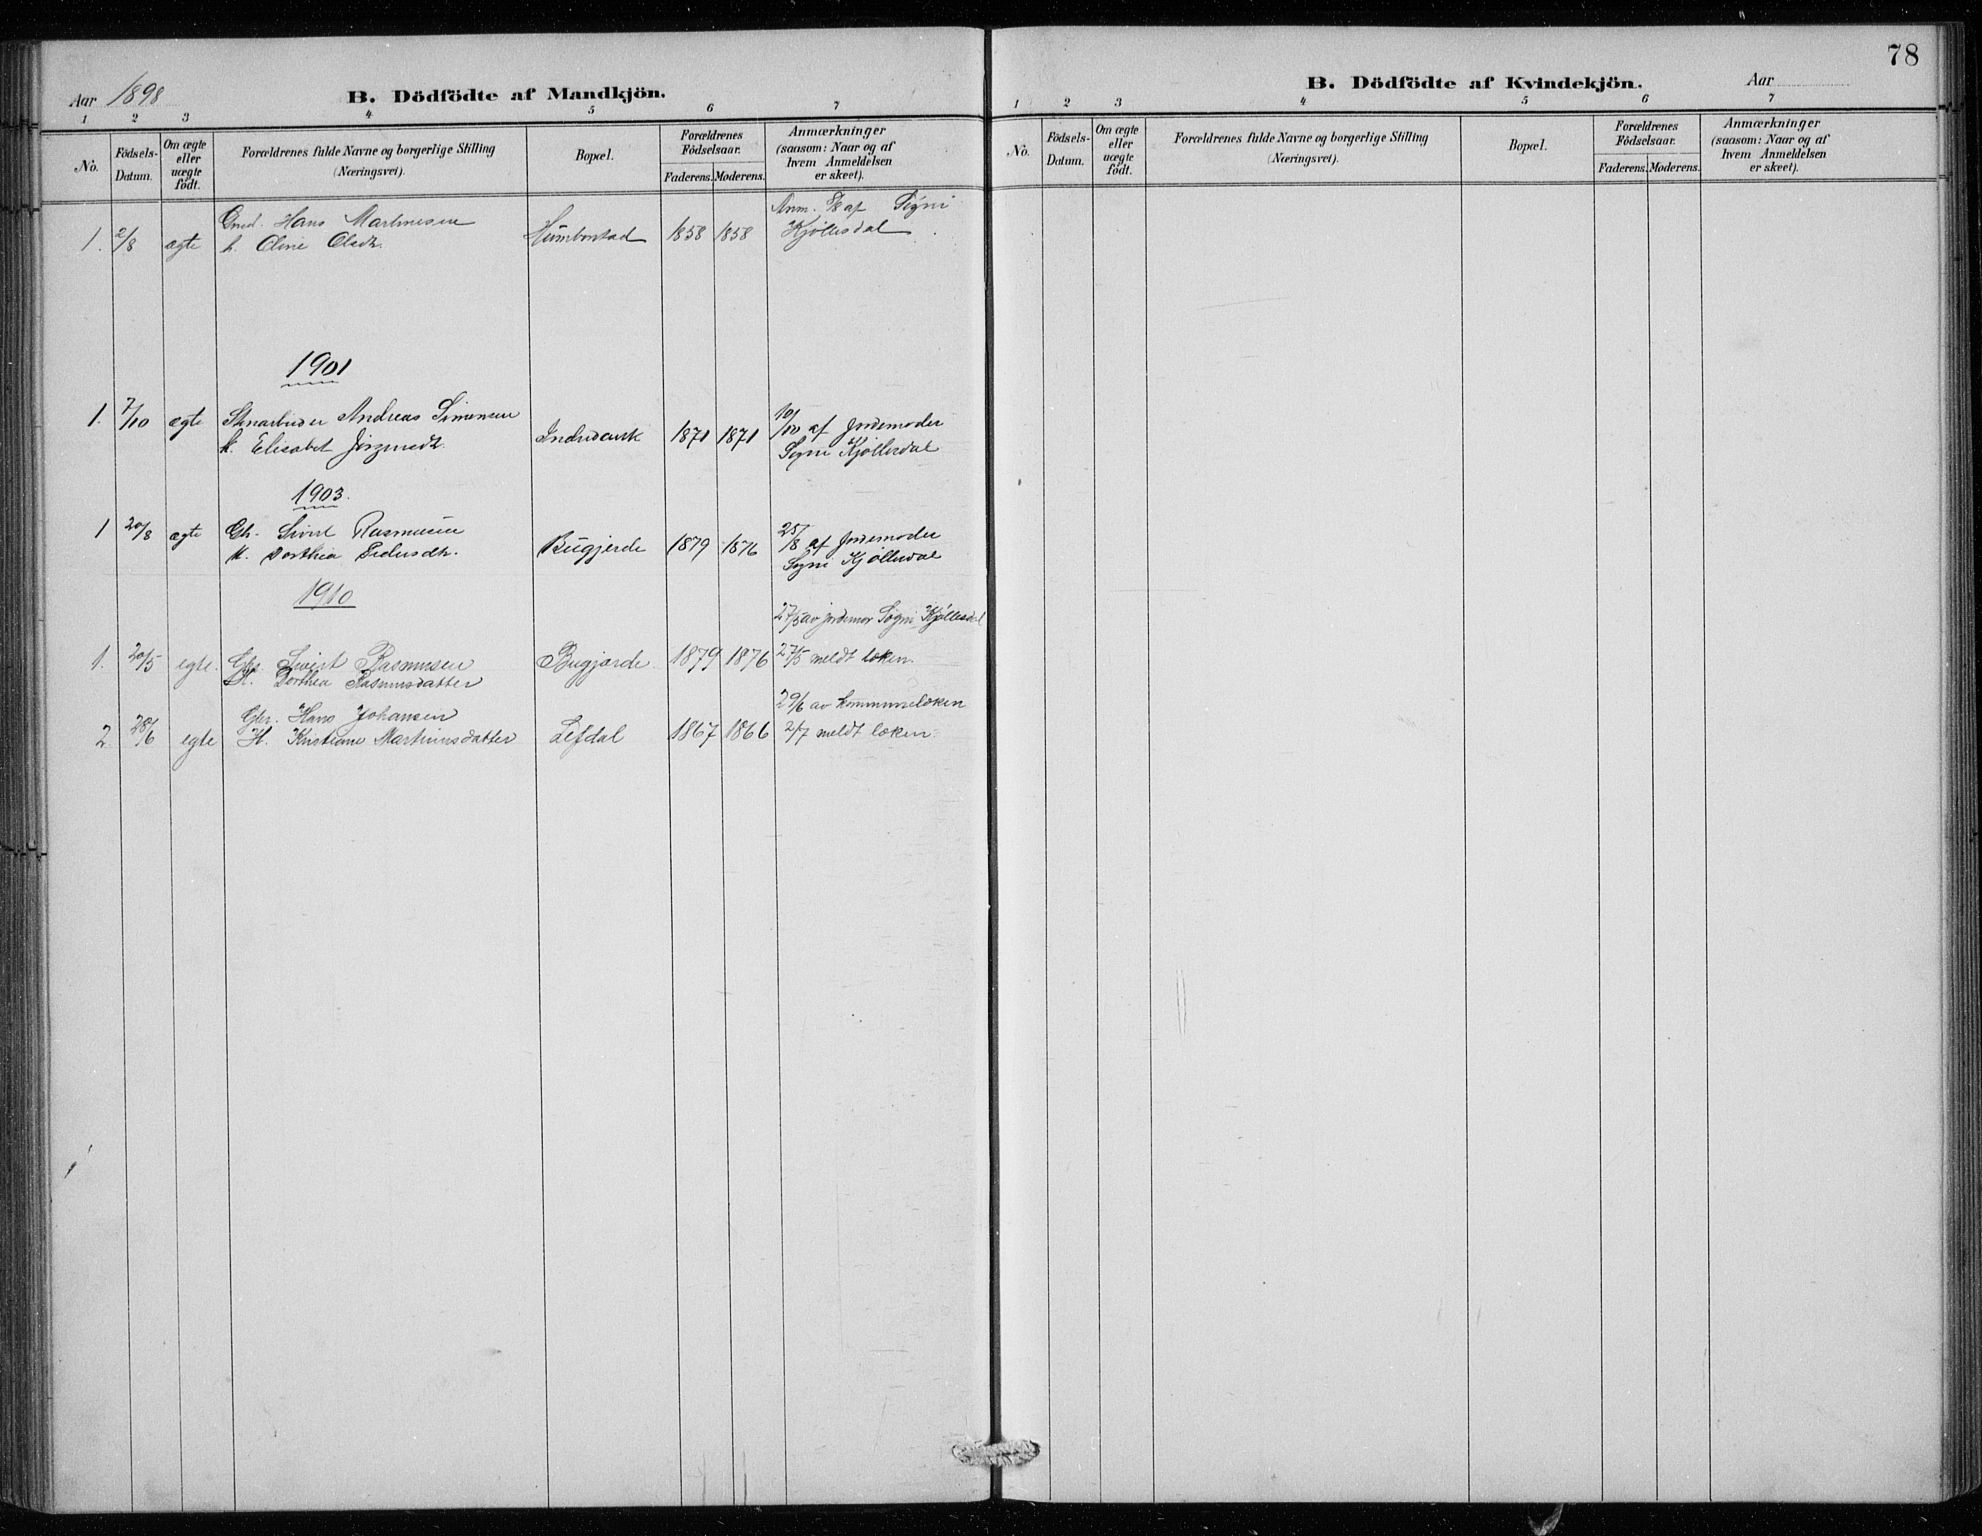 78
Aar 1898
B. Dödfödte af Mandkjön.
1 2 3 4 5 6 7
No.
Födsels-Datum.
Om ægte eller uægte födt.
Forældrenes fulde Navne og borgerlige Stilling (Næringsvei).
Bopæl.
Forældrenes Födselsaar.
Faderens. Moderens.
Anmærkninger (saasom: Naar og af hvem Anmeldelsen er skeet).
Hans Martinusen Anm. af Signi
1. 2/8 ægte h. Oline Olsdtr. Humborstad 1858 1858 Kjøllesdal
1901
1. 7/10 ægte Andreas Simonsen 10/10 af Jordemoder
k. Elisabet 1871 1871 Signi Kjøllesdal
1903.
1 20/8 ægte Gbr. Sivert Rasmusen 25/8 af Jordemoder
k. Dorthea Bugjerde 1879 1876 Signi Kjøllesdal
1910
27/5 av jordemor Signi Kjøllesdal
1. 20/5 egte. Gbr. Sivert Rasmusen Bugjærde 1879 1876 27/5 meldt læken.
H. Dorthea Rasmusdatter
29/6 av kommunelæken
Gbr. Hans Johansen
2 28/6 egte H. Kristiane Martinusdatter Lefdal 1867 1866 2/7 meldt læken.
B. Dödfödte af Kvindekjön.
Aar
1 2 3 4 5 6 7
No.
Födsels-Datum.
Om ægte eller uægte födt.
Forældrenes fulde Navne og borgerlige Stilling (Næringsvei).
Bopæl.
Forældrenes Födselsaar.
Faderens. Moderens.
Anmærkninger (saasom: Naar og af hvem Anmeldelsen er skeet).